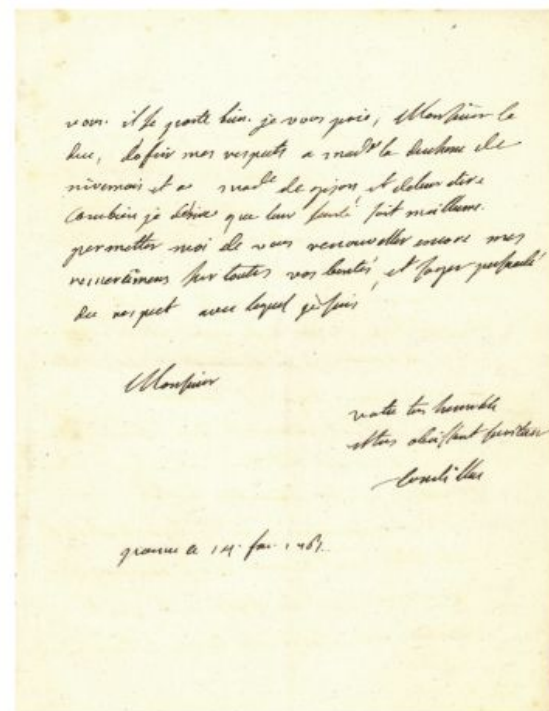 vous. il se porte bien. je vous prie, Monsieur le
duc, d'ofrir mes respects a mad.e la duchesse de
nivernois et a mad.e de gisors et de leur dire
combien je désire que leur santé soit meilleure.
permetter moi de vous renouveller encore mes
remerciemens sur toutes vos bontés, et soyez persuadé
du respect avec lequel je suis
Monsieur
votre tres humble
et tres obéissant serviteur
Condillac
a 14.